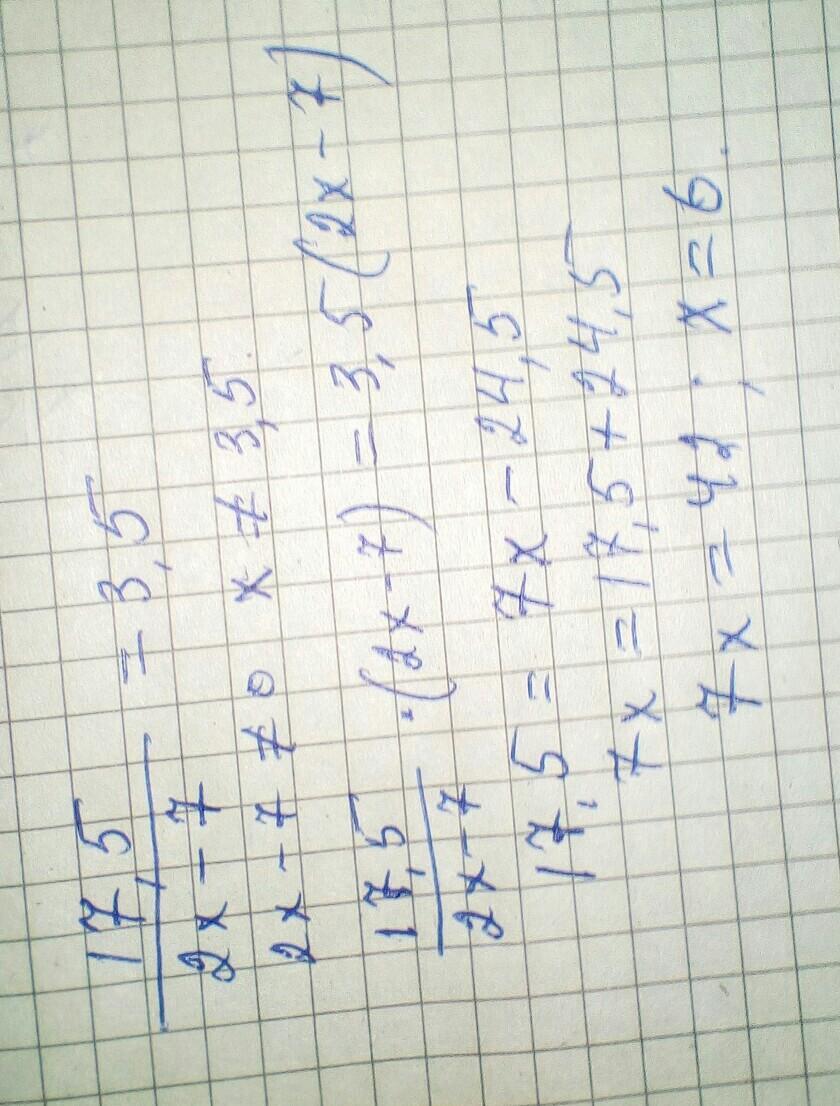 17,5 / 2x - 7 = 3,5
2x - 7 ≠ 0 x ≠ 3,5
17,5 / 2x - 7 · (2x - 7) = 3,5 (2x - 7)
17,5 = 7x - 24,5
7x = 17,5 + 24,5
7x = 42; x = 6.